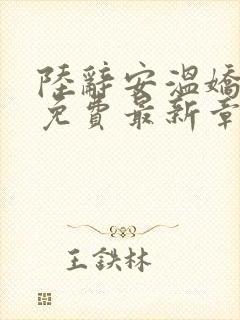 陸辭安溫嬌
免費最新章
王鉄林